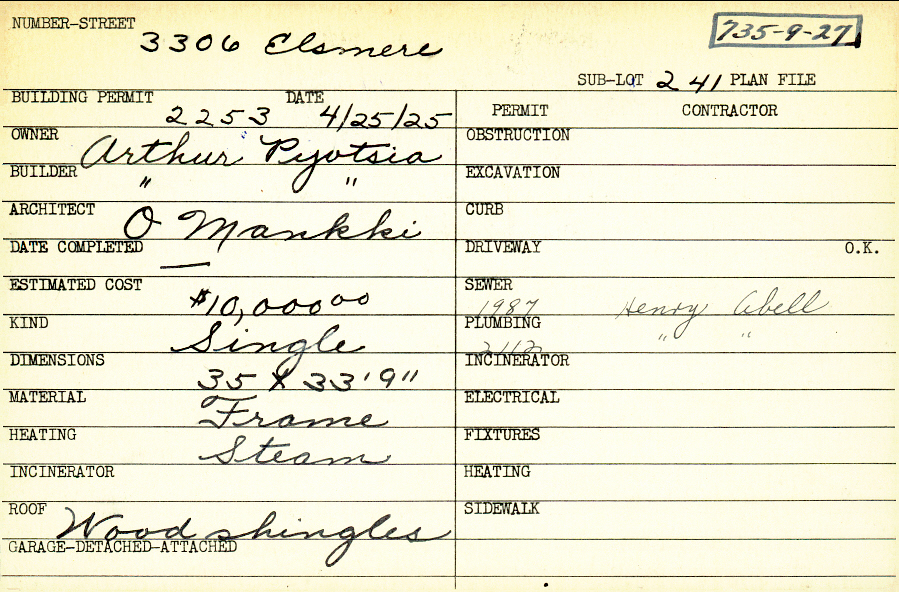 NUMBER-STREET
3306 Elsmere
735-9-27
SUB-LOT 241 PLAN FILE
BUILDING PERMIT 2253 DATE 4/25/25
PERMIT CONTRACTOR
OWNER Arthur Pyotsia
OBSTRUCTION
BUILDER " "
EXCAVATION
ARCHITECT O Mankki
CURB
DATE COMPLETED —
DRIVEWAY O.K.
ESTIMATED COST $10,000 00
SEWER 1987 Henry Abell
KIND Single
PLUMBING " "
DIMENSIONS 35 X 33'9"
INCINERATOR
MATERIAL Frame
ELECTRICAL
HEATING Steam
FIXTURES
INCINERATOR
HEATING
ROOF Wood shingles
SIDEWALK
GARAGE-DETACHED-ATTACHED